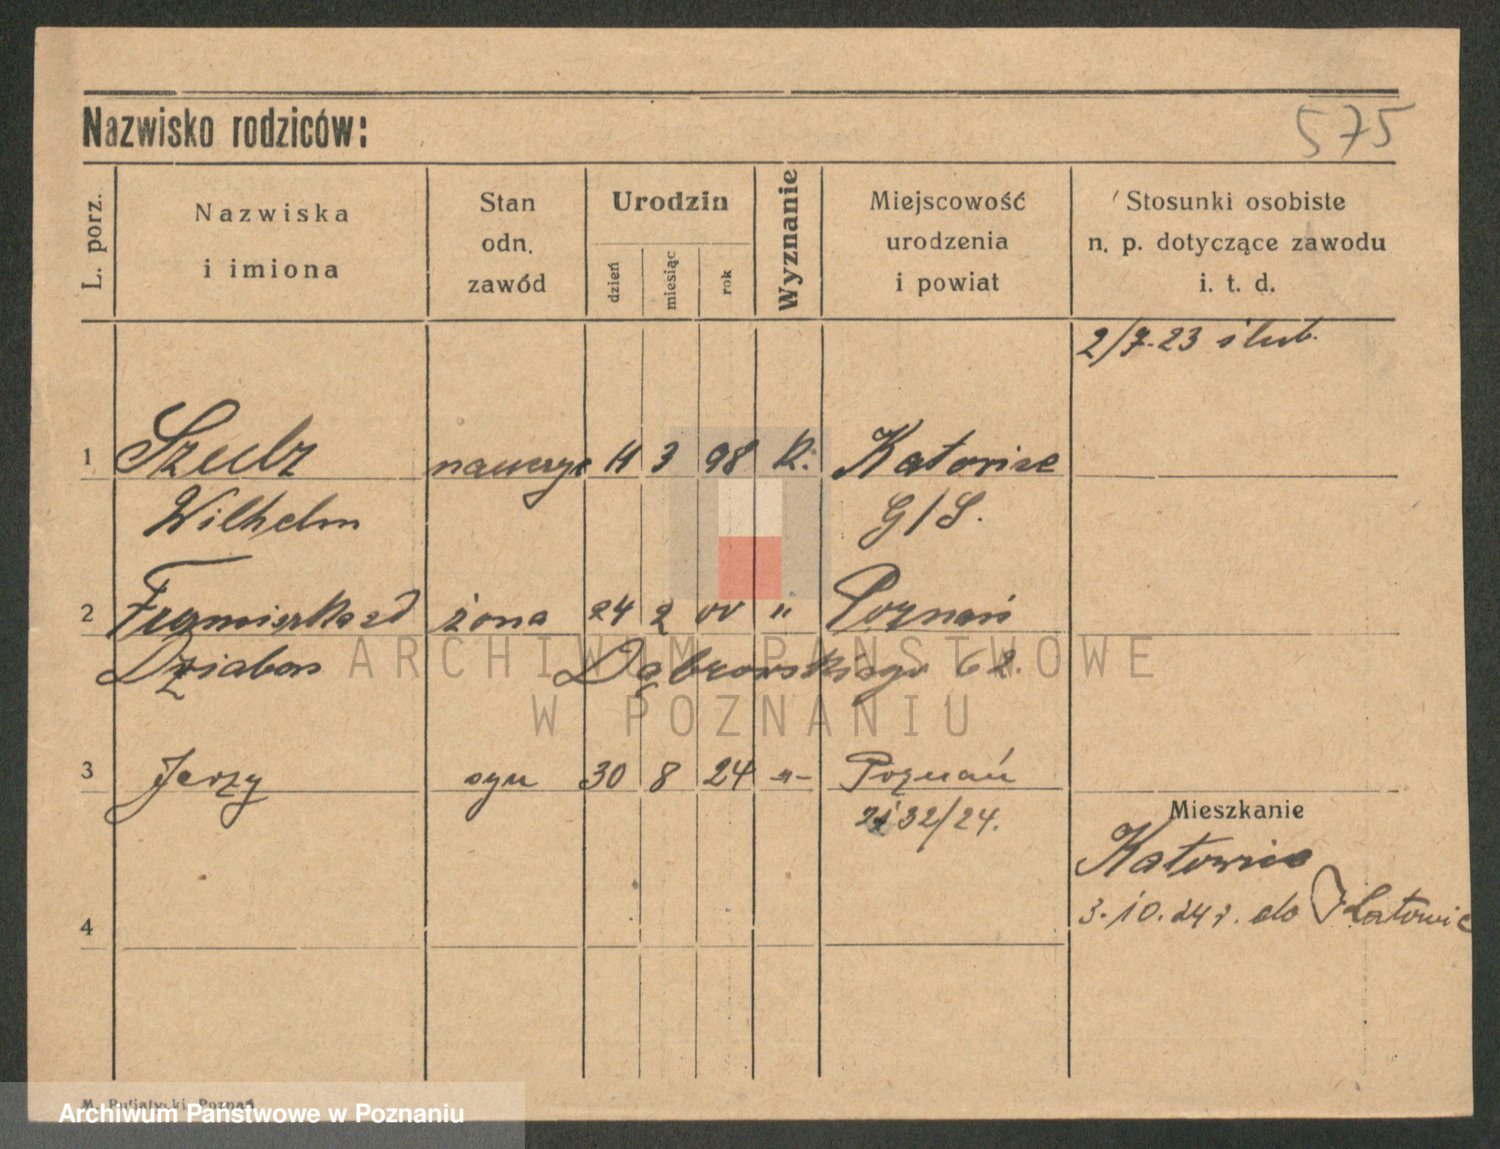 575
Nazwisko rodziców:
L. porz.
Nazwiska
i imiona
Stan
odn.
zawód
Urodzin
dzień
miesiąc
rok
Wyznanie
Miejscowość
urodzenia
i powiat
Stosunki osobiste
n. p. dotyczące zawodu
i. t. d.
2/7.23 ślub.
1 98 K. Katowice
Wilhelm G/S.
2 żona 24 2 00 " Poznań
Dąbrowskiego 62.
ARCHIWUM PAŃSTWOWE
W POZNANIU
3 Jerzy syn 30 8 24 -"- Poznań
32/24.
Mieszkanie
Katowice
4 3.10.24 r. do Katowic
M. Putiatycki, Poznań
Archiwum Państwowe w Poznaniu